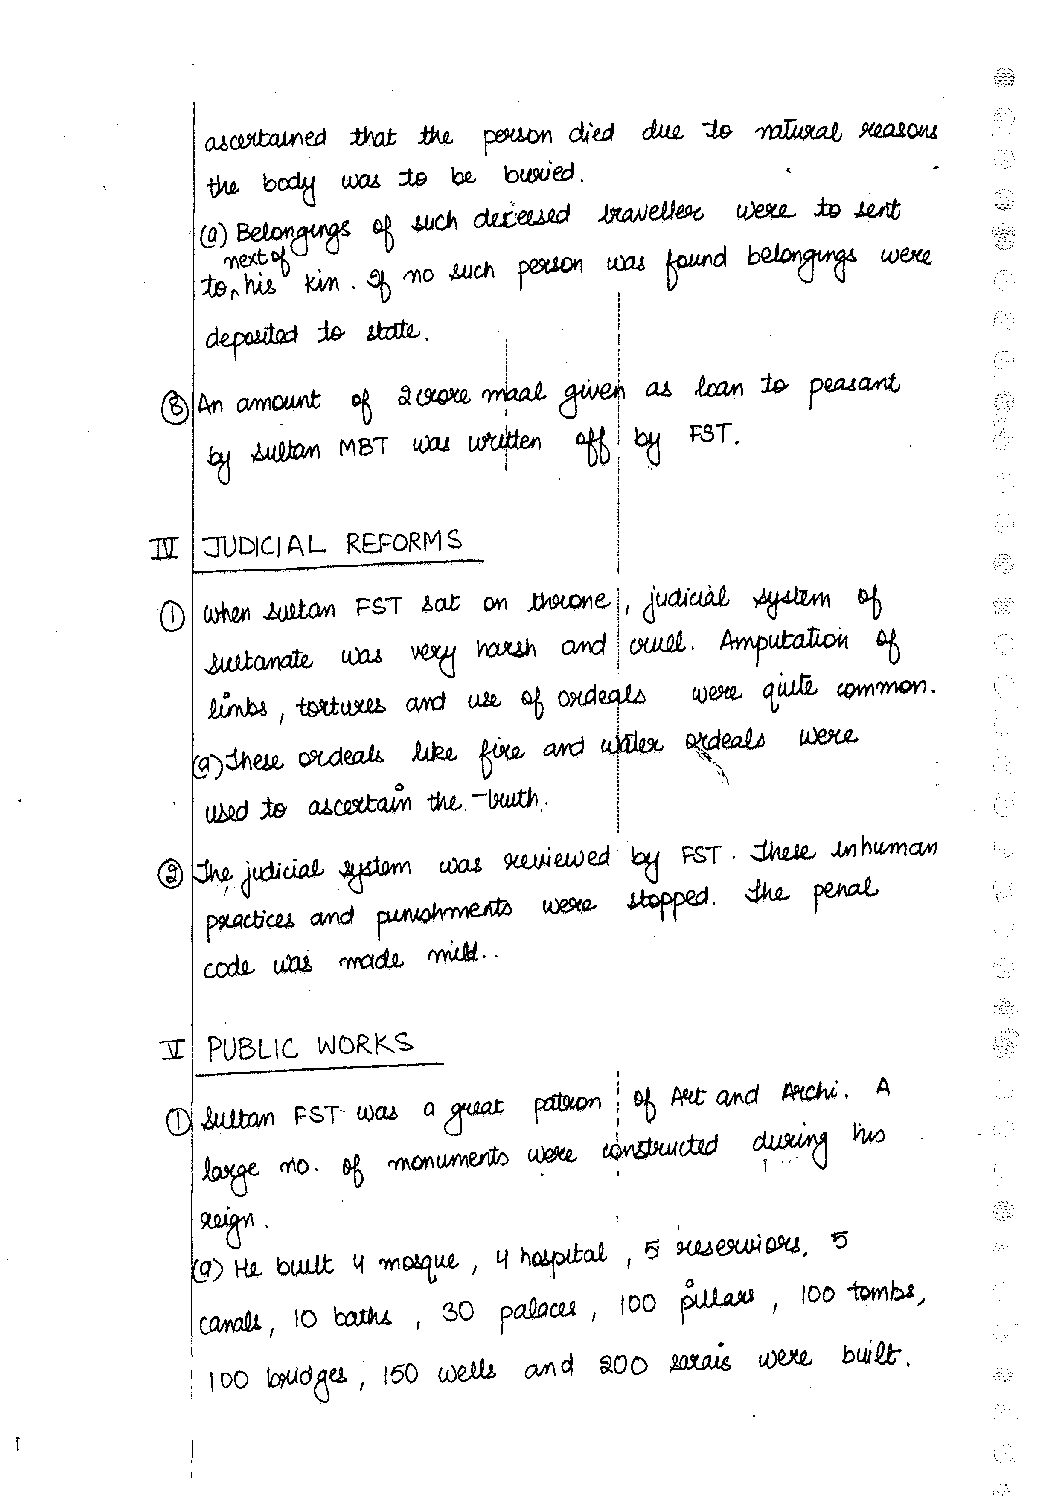 ascertained that the person died due to natural reasons
the body was to be buried.
(a) Belongings of such deceesed traveller were to sent
next of
to, his kin. If no such person was found belongings were
deposited to state.
③ An amount of 2 crore maal given as loan to peasant
by sultan MBT was written off by FST.
IV JUDICIAL REFORMS
① When sultan FST sat on throne, judicial system of
sultanate was very harsh and cruel. Amputation of
limbs, tortures and use of ordeals were quite common.
(a) These ordeals like fire and water ordeals were
used to ascertain the truth.
② The judicial system was reviewed by FST. These inhuman
practices and punishments were stopped. The penal
code was made mild..
V PUBLIC WORKS
① Sultan FST was a great patron of Art and Archi. A
large no. of monuments were constructed during his
reign.
(a) He built 4 mosque, 4 hospital, 5 reserviors, 5
canals, 10 baths, 30 palaces, 100 pillars, 100 tombs,
100 bridges, 150 wells and 200 sarais were built.